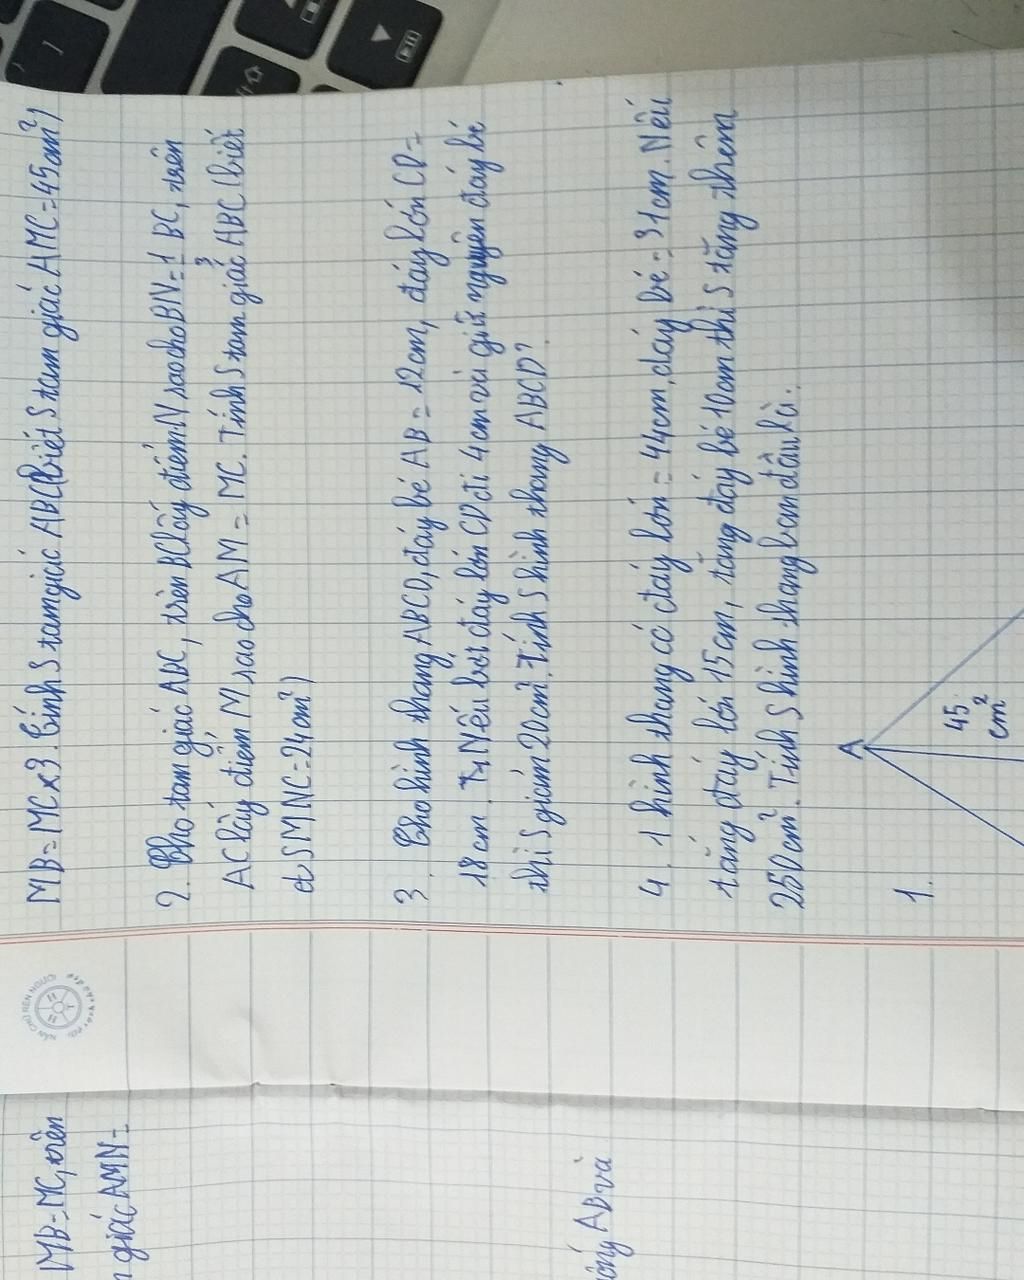 MB = MC x 3. Tính S tam giác ABC (biết S tam giác AMC = 45cm²)
2. Cho tam giác ABC, trên BC lấy điểm N sao cho BN = 1/3 BC, trên
AC lấy điểm M sao cho AM = MC. Tính S tam giác ABC (biết
S MNC = 24cm²)
3. Cho hình thang ABCD, đáy bé AB = 12cm, đáy lớn CD =
18cm. Nếu bớt đáy lớn CD đi 4cm và giữ nguyên đáy bé
thì S giảm 20cm². Tính S hình thang ABCD?
4. 1 hình thang có đáy lớn = 44cm, đáy bé = 31cm. Nếu
tăng đáy lớn 15cm, tăng đáy bé 10cm thì S tăng thêm
250cm². Tính S hình thang ban đầu
1.
A
45
cm²
MB = MC, trên
giác AMN =
AB và